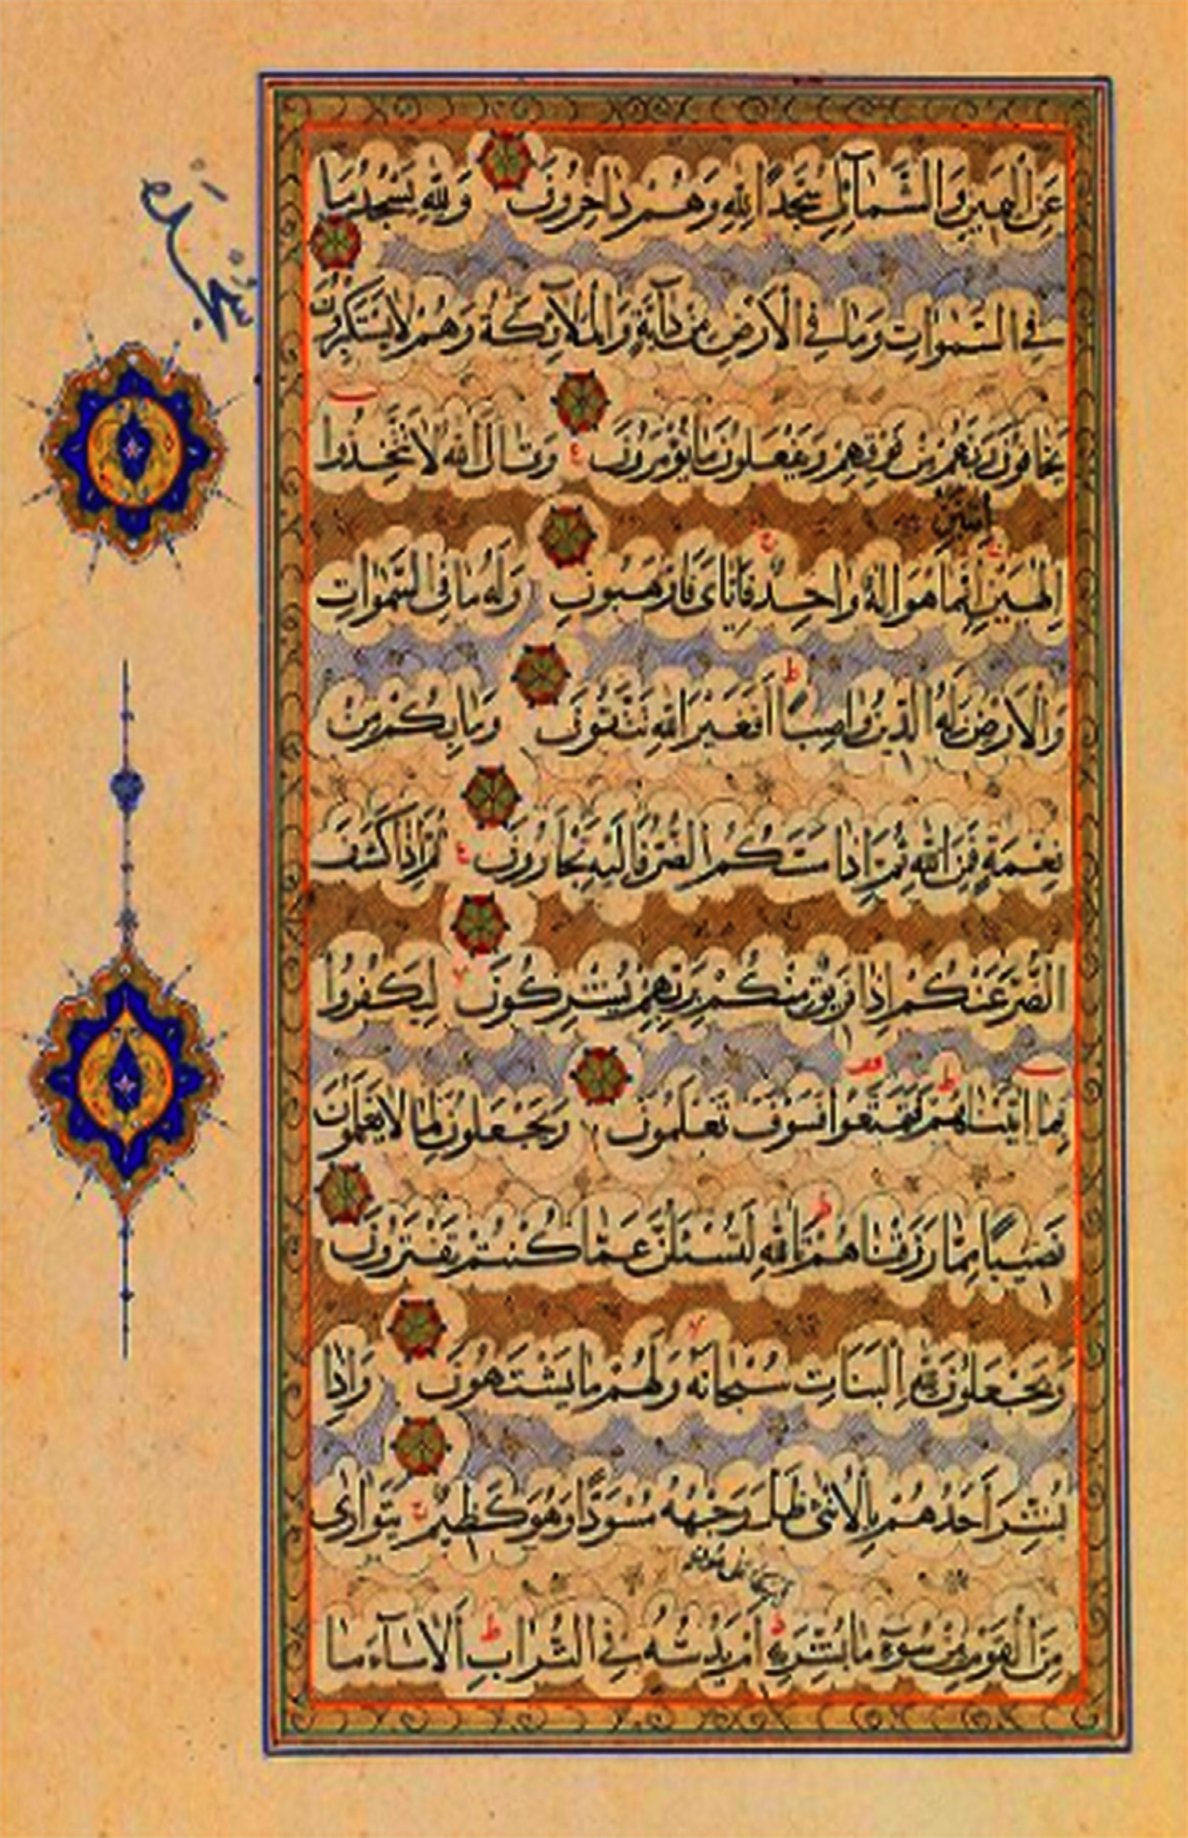 عَنِ الْيَمِينِ وَالشَّمَآئِلِ سُجَّدًا لِلّٰهِ وَهُمْ دَاخِرُونَ وَلِلّٰهِ يَسْجُدُ مَا
سجده
فِي السَّمٰوَاتِ وَمَا فِي الْأَرْضِ مِنْ دَآبَّةٍ وَالْمَلَآئِكَةُ وَهُمْ لَا يَسْتَكْبِرُونَ
يَخَافُونَ رَبَّهُمْ مِنْ فَوْقِهِمْ وَيَفْعَلُونَ مَا يُؤْمَرُونَ ع وَقَالَ اللّٰهُ لَا تَتَّخِذُوا
اثْنَيْنِ
إِلٰهَيْنِ إِنَّمَا هُوَ إِلٰهٌ وَاحِدٌ فَإِيَّايَ فَارْهَبُونِ وَلَهُ مَا فِي السَّمٰوَاتِ
وَالْأَرْضِ وَلَهُ الدِّينُ وَاصِبًا ط أَفَغَيْرَ اللّٰهِ تَتَّقُونَ وَمَا بِكُمْ مِنْ
نِعْمَةٍ فَمِنَ اللّٰهِ ثُمَّ إِذَا مَسَّكُمُ الضُّرُّ فَإِلَيْهِ تَجْأَرُونَ ع ثُمَّ إِذَا كَشَفَ
الضُّرَّ عَنْكُمْ إِذَا فَرِيقٌ مِنْكُمْ بِرَبِّهِمْ يُشْرِكُونَ لا لِيَكْفُرُوا
بِمَا اٰتَيْنَاهُمْ ط فَتَمَتَّعُوا قف فَسَوْفَ تَعْلَمُونَ وَيَجْعَلُونَ لِمَا لَا يَعْلَمُونَ
نَصِيبًا مِمَّا رَزَقْنَاهُمْ ط تَاللّٰهِ لَتُسْئَلُنَّ عَمَّا كُنْتُمْ تَفْتَرُونَ
وَيَجْعَلُونَ لِلّٰهِ الْبَنَاتِ سُبْحَانَهُ لا وَلَهُمْ مَا يَشْتَهُونَ وَإِذَا
بُشِّرَ أَحَدُهُمْ بِالْأُنْثٰى ظَلَّ وَجْهُهُ مُسْوَدًّا وَهُوَ كَظِيمٌ ج يَتَوَارٰى
مِنَ الْقَوْمِ مِنْ سُوٓءِ مَا بُشِّرَ بِهِ ط أَمْ يَدُسُّهُ فِي التُّرَابِ ط أَلَا سَآءَ مَا